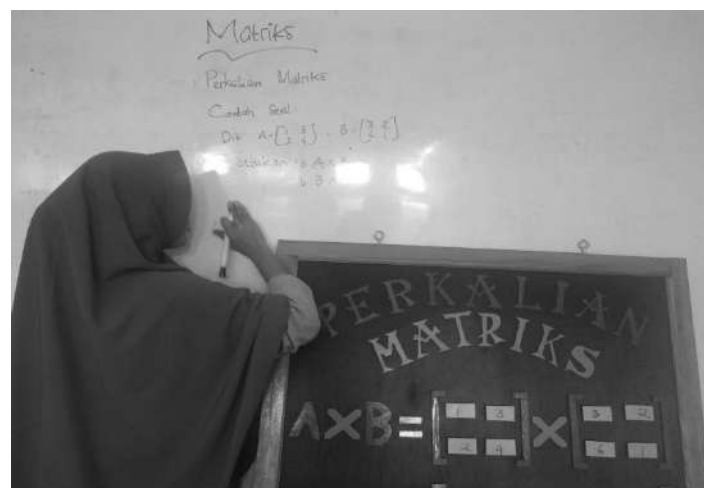 Matriks
Perkalian Matriks
Contoh Soal
Dik A=[1 3
B=[3 2
a. A x
b. B
PERKALIAN
MATRIKS
A×B= [1 3] × [3 2]
[2 4] [6 1]